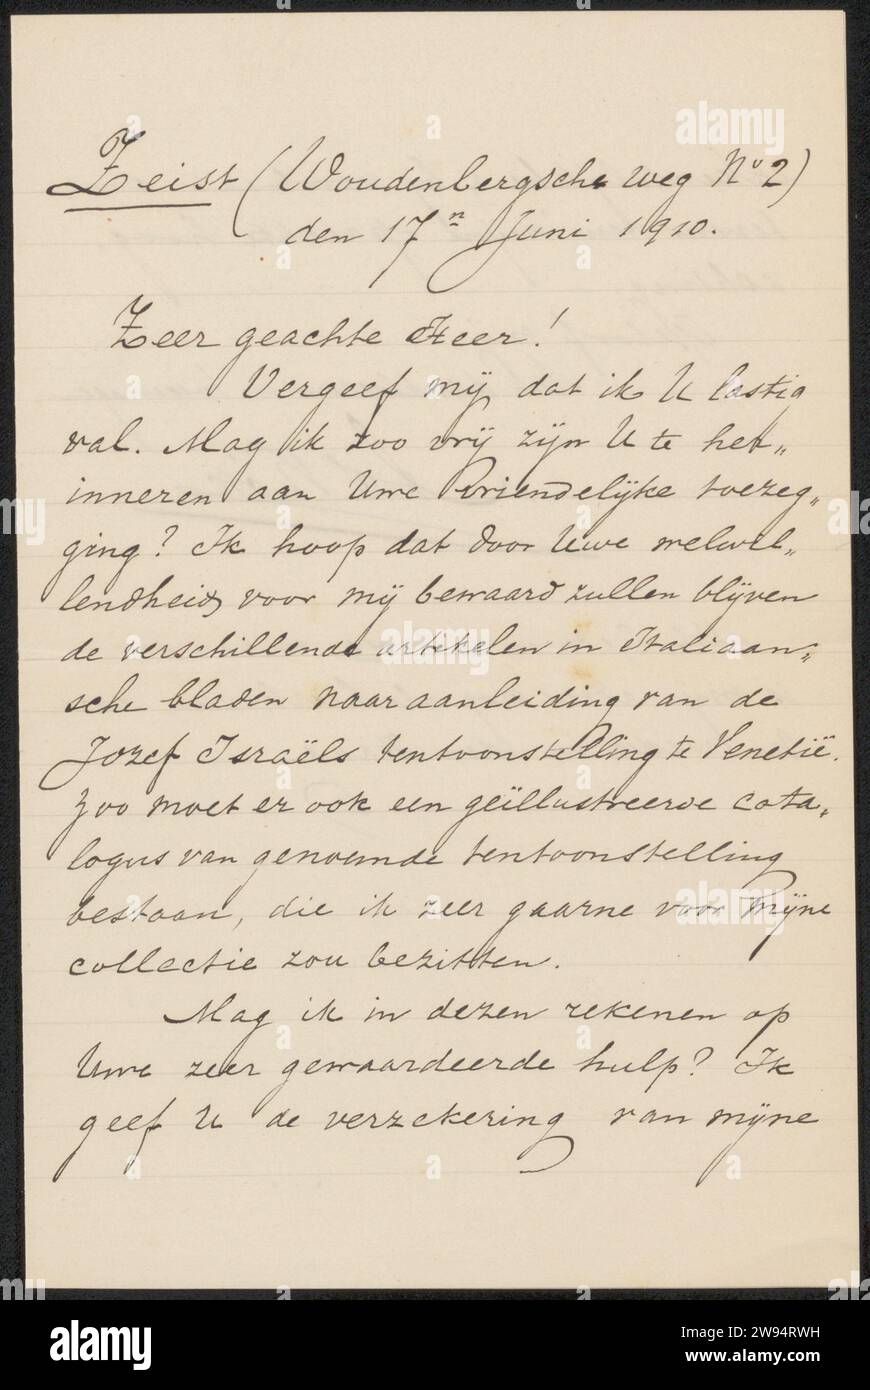 Zeist (Woudenbergsche weg No 2)
den 17n Juni 1910.
Zeer geachte Heer!
Vergeef mij dat ik U lastig
val. Mag ik zoo vrij zijn U te her„
inneren aan Uwe vriendelijke toezeg„
ging? Ik hoop dat door Uwe welwil„
lendheid voor mij bewaard zullen blijven
de verschillende artikelen in Italiaan„
sche bladen naar aanleiding van de
Jozef Israëls tentoonstelling te Venetië.
Zoo moet er ook een geïllustreerde cata„
logus van genoemde tentoonstelling
bestaan, die ik zeer gaarne voor mijne
collectie zou bezitten.
Mag ik in dezen rekenen op
Uwe zeer gewaardeerde hulp? Ik
geef U de verzekering van mijne
alamy
Image ID: 2W94RWH
www.alamy.com